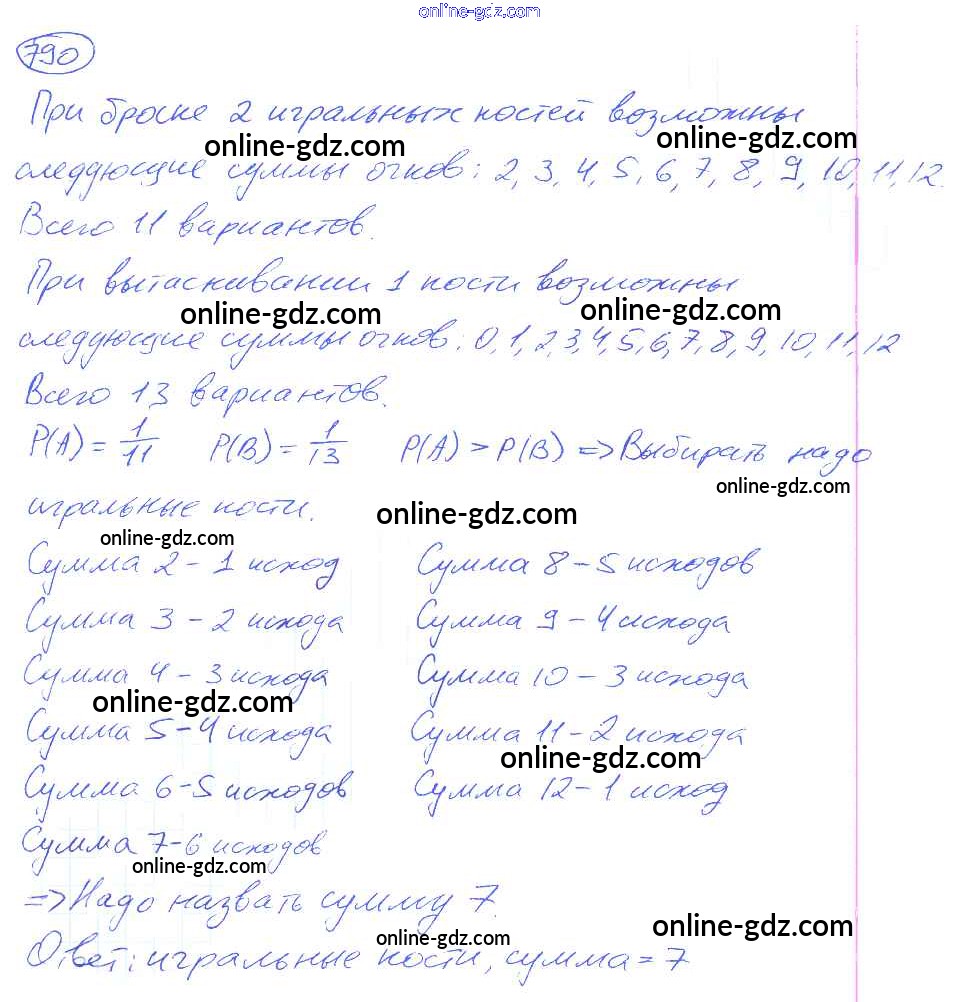 online-gdz.com
790
При броске 2 игральных костей возможны
online-gdz.com online-gdz.com
следующие суммы очков: 2, 3, 4, 5, 6, 7, 8, 9, 10, 11, 12.
Всего 11 вариантов.
При вытаскивании 1 кости возможны
online-gdz.com online-gdz.com
следующие суммы очков: 0, 1, 2, 3, 4, 5, 6, 7, 8, 9, 10, 11, 12
Всего 13 вариантов.
P(A) = 1/11 P(B) = 1/13 P(A) > P(B) => Выбирать надо
online-gdz.com
игральные кости.
online-gdz.com
online-gdz.com
Сумма 2 - 1 исход Сумма 8 - 5 исходов
Сумма 3 - 2 исхода Сумма 9 - 4 исхода
Сумма 4 - 3 исхода Сумма 10 - 3 исхода
online-gdz.com
Сумма 5 - 4 исхода Сумма 11 - 2 исхода
online-gdz.com
Сумма 6 - 5 исходов Сумма 12 - 1 исход
Сумма 7 - 6 исходов
online-gdz.com
=> Надо назвать сумму 7.
online-gdz.com online-gdz.com
Ответ: игральные кости, сумма = 7